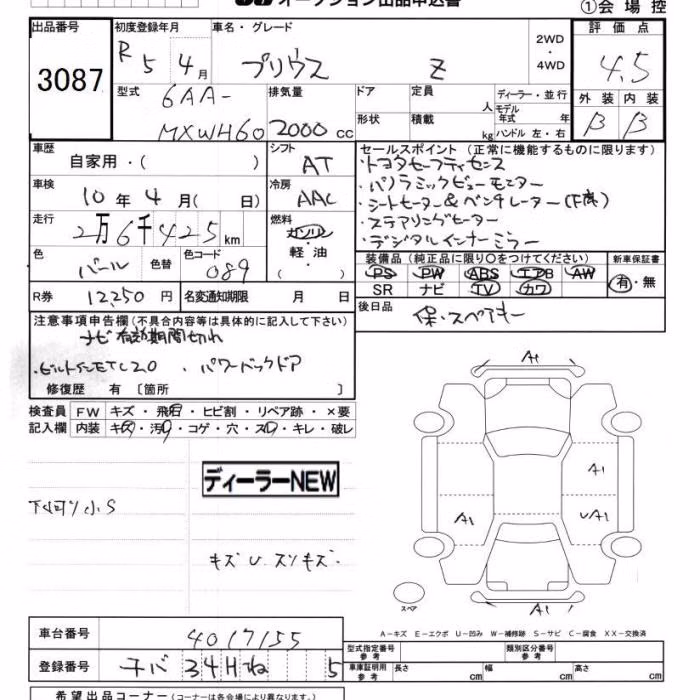 オークション出品申込書
①会場控
出品番号
3087
初度登録年月
R5 4月
車名・グレード
プリウス Z
2WD・4WD
評価点
4.5
型式
6AA-
MXWH60
排気量
2000 cc
ドア
定員 人
ディーラー・並行
モデル年式 年
形状
積載 kg
ハンドル 左・右
外装 内装
B B
車歴
自家用・( )
シフト
AT
セールスポイント (正常に機能するものに限ります)
・トヨタセーフティセンス
・パノラミックビューモニター
・シートヒーター&ベンチレーター(F席)
・ステアリングヒーター
・デジタルインナーミラー
車検
10年 4月( 日)
冷房
AAC
走行
2万6千425km
燃料
ガソリン
軽油
( )
色
パール
色替
色コード
089
装備品 (純正品に限り○をつけてください)
新車保証書
PS PW ABS エアB AW
SR ナビ TV カワ
有・無
R券
12,250円
名変通知期限 月 日
後日品
保・スペアキー
注意事項申告欄 (不具合内容等は具体的に記入して下さい)
ナビ有効期間切れ
・ビルトインETC2.0 ・パワーバックドア
修復歴 有 〔箇所 〕
検査員記入欄
FW キズ・飛石・ヒビ割・リペア跡・×要
内装 キズ・汚れ・コゲ・穴・スレ・キレ・破レ
ディーラーNEW
小S
キズU スリキズ
A1
A1
A1
UA1
A1
スペア
A-キズ E-エクボ U-凹み W-補修跡 S-サビ C-腐食 XX-交換済
車台番号
4017155
登録番号
34H ね 5
型式指定番号参考
類別区分番号
車庫証明用参考
長さ cm 幅 cm 高さ cm
希望出品コーナー (コーナーは各会場により異なります)